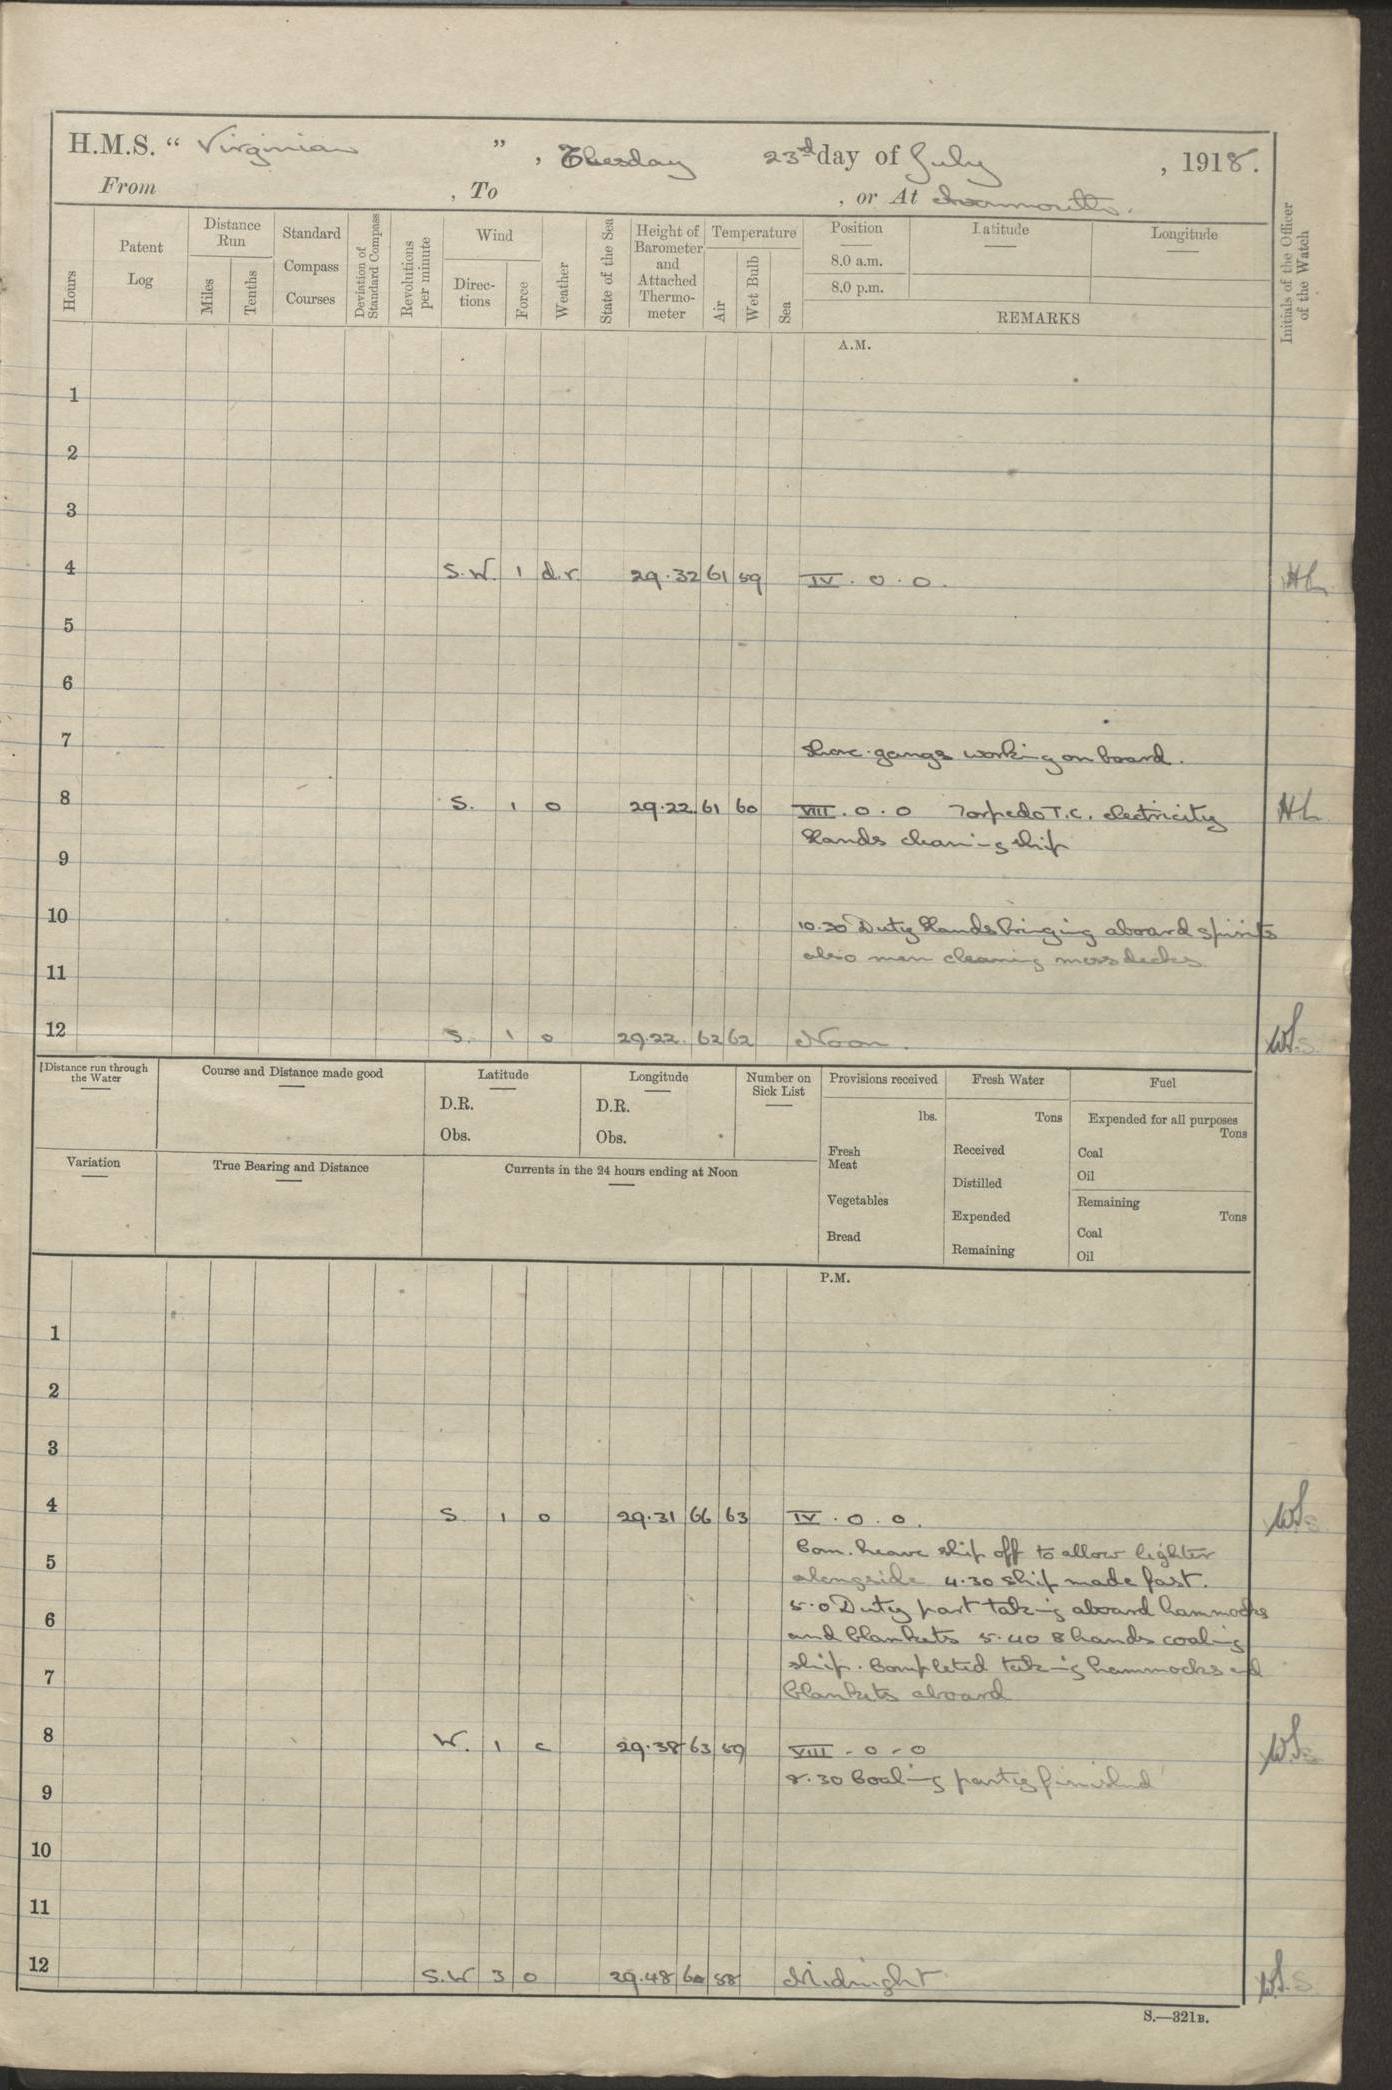 H.M.S. “ Virginian ” , Tuesday 23rd day of July , 1918.
From , To , or At Avonmouth.
Hours
Patent Log
Distance Run
Miles
Tenths
Standard Compass Courses
Deviation of Standard Compass
Revolutions per minute
Wind
Direc-tions
Force
Weather
State of the Sea
Height of Barometer and Attached Thermo-meter
Temperature
Air
Wet Bulb
Sea
Position
8.0 a.m.
8.0 p.m.
Latitude
Longitude
REMARKS
Initials of the Officer of the Watch
A.M.
1
2
3
4 S.W. 1 d.r 29.32 61 59 IV . 0 . 0 . HL
5
6
7
Shore gangs working on board.
8 S. 1 0 29.22 61 60 VIII . 0 . 0 Torpedo T.C. electricity HL
Hands cleaning ship
9
10
10.30 Duty Hands bringing aboard spirits
also men cleaning mess decks
11
12 S. 1 0 29.22. 62 62 Noon. W.S.S
Distance run through the Water
Course and Distance made good
Latitude
D.R.
Obs.
Longitude
D.R.
Obs.
Number on Sick List
Provisions received
lbs.
Fresh Meat
Vegetables
Bread
Fresh Water
Tons
Received
Distilled
Expended
Remaining
Fuel
Expended for all purposes
Tons
Coal
Oil
Remaining
Tons
Coal
Oil
Variation
True Bearing and Distance
Currents in the 24 hours ending at Noon
P.M.
1
2
3
4 S 1 0 29.31 66 63 IV . 0 . 0 . W.S.S
Com. heave ship off to allow lighter
5
alongside 4.30 ship made fast.
5.0 Duty part taking aboard hammocks
6
and blankets 5.40 8 hands coaling
ship. Completed taking hammocks and
7
blankets aboard
8 W. 1 c 29.38 63 59 VIII - 0 - 0 W.S.S
8.30 Coaling party finished
9
10
11
12 S.W 3 0 29.48 60 58 Midnight W.S.S
S.—321B.